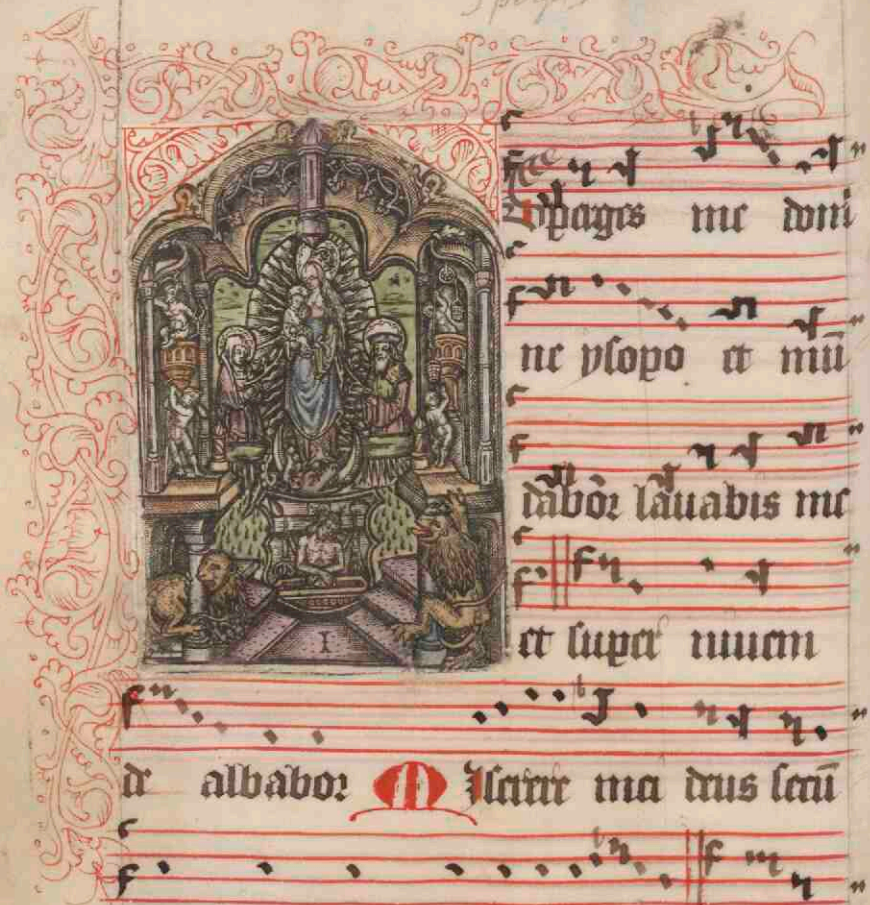 Asperges me domi
ne ysopo et mū
dabor lauabis me
et super niuem
de albabor Miserere mei deus secū
I